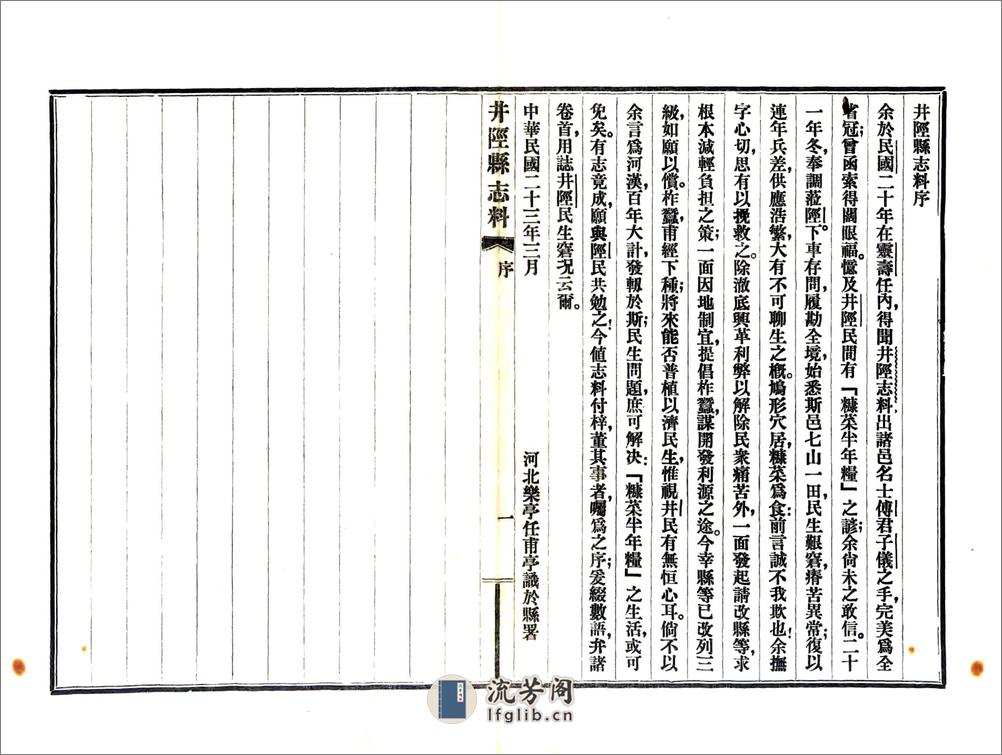 井陘縣志料序
余於民國二十年在靈壽任內，得聞井陘志料出諸邑名士傅君子儀之手，完美爲全
省冠；曾函索得闊眼福。憶及井陘民間有「糠菜半年糧」之諺；余尙未之敢信。二十
一年冬，奉調蒞陘。下車存問，履勘全境，始悉斯邑七山一田，民生艱窘，瘠苦異常；復以
連年兵差，供應浩繁，大有不可聊生之槪。鳩形穴居，糠菜爲食；前言誠不我欺也！余撫
字心切，思有以挽救之。除澈底興革利弊，以解除民衆痛苦外，一面發起請改縣等，求
根本減輕負担之策；一面因地制宜，提倡柞蠶，謀開發利源之途。今幸縣等已改列三
級，如願以償。柞蠶甫經下種；將來能否普植以濟民生，惟視井民有無恒心耳。倘不以
余言爲河漢，百年大計，發軔於斯；民生問題，庶可解决：「糠菜半年糧」之生活，或可
免矣。有志竟成，願與陘民共勉之！今値志料付梓，董其事者，囑爲之序；爰綴數語，弁諸
卷首，用誌井陘民生窘况云爾。
中華民國二十三年三月　河北樂亭任甫亭識於縣署
井陘縣志料　序　一
流芳阁
lfglib.cn